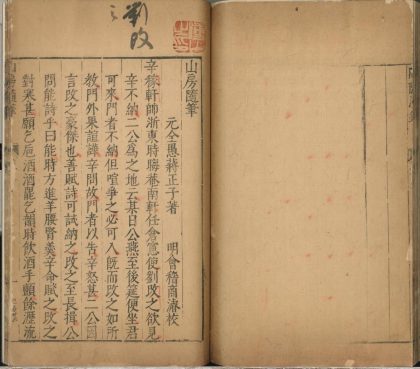 劉改
山房隨筆
元全愚蔣正子著　明會稽商濬校
辛稼軒帥浙東時晦菴南軒任倉憲使劉改之欲見
辛不納二公為之地云某日公燕至後筵便坐君
可來門者不納但喧爭之必可入既而改之如所
教門外果諠譁辛問故門者以告辛怒甚二公因
言改之豪傑也善賦詩可試納之改之至長揖公
問能詩乎曰能時方進羊腰腎羹辛命賦之改之
對寒甚願乞卮酒酒罷乞韻時飲酒手顫餘瀝流